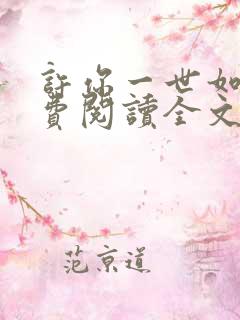 許你一世如
費閱讀全文
范京道